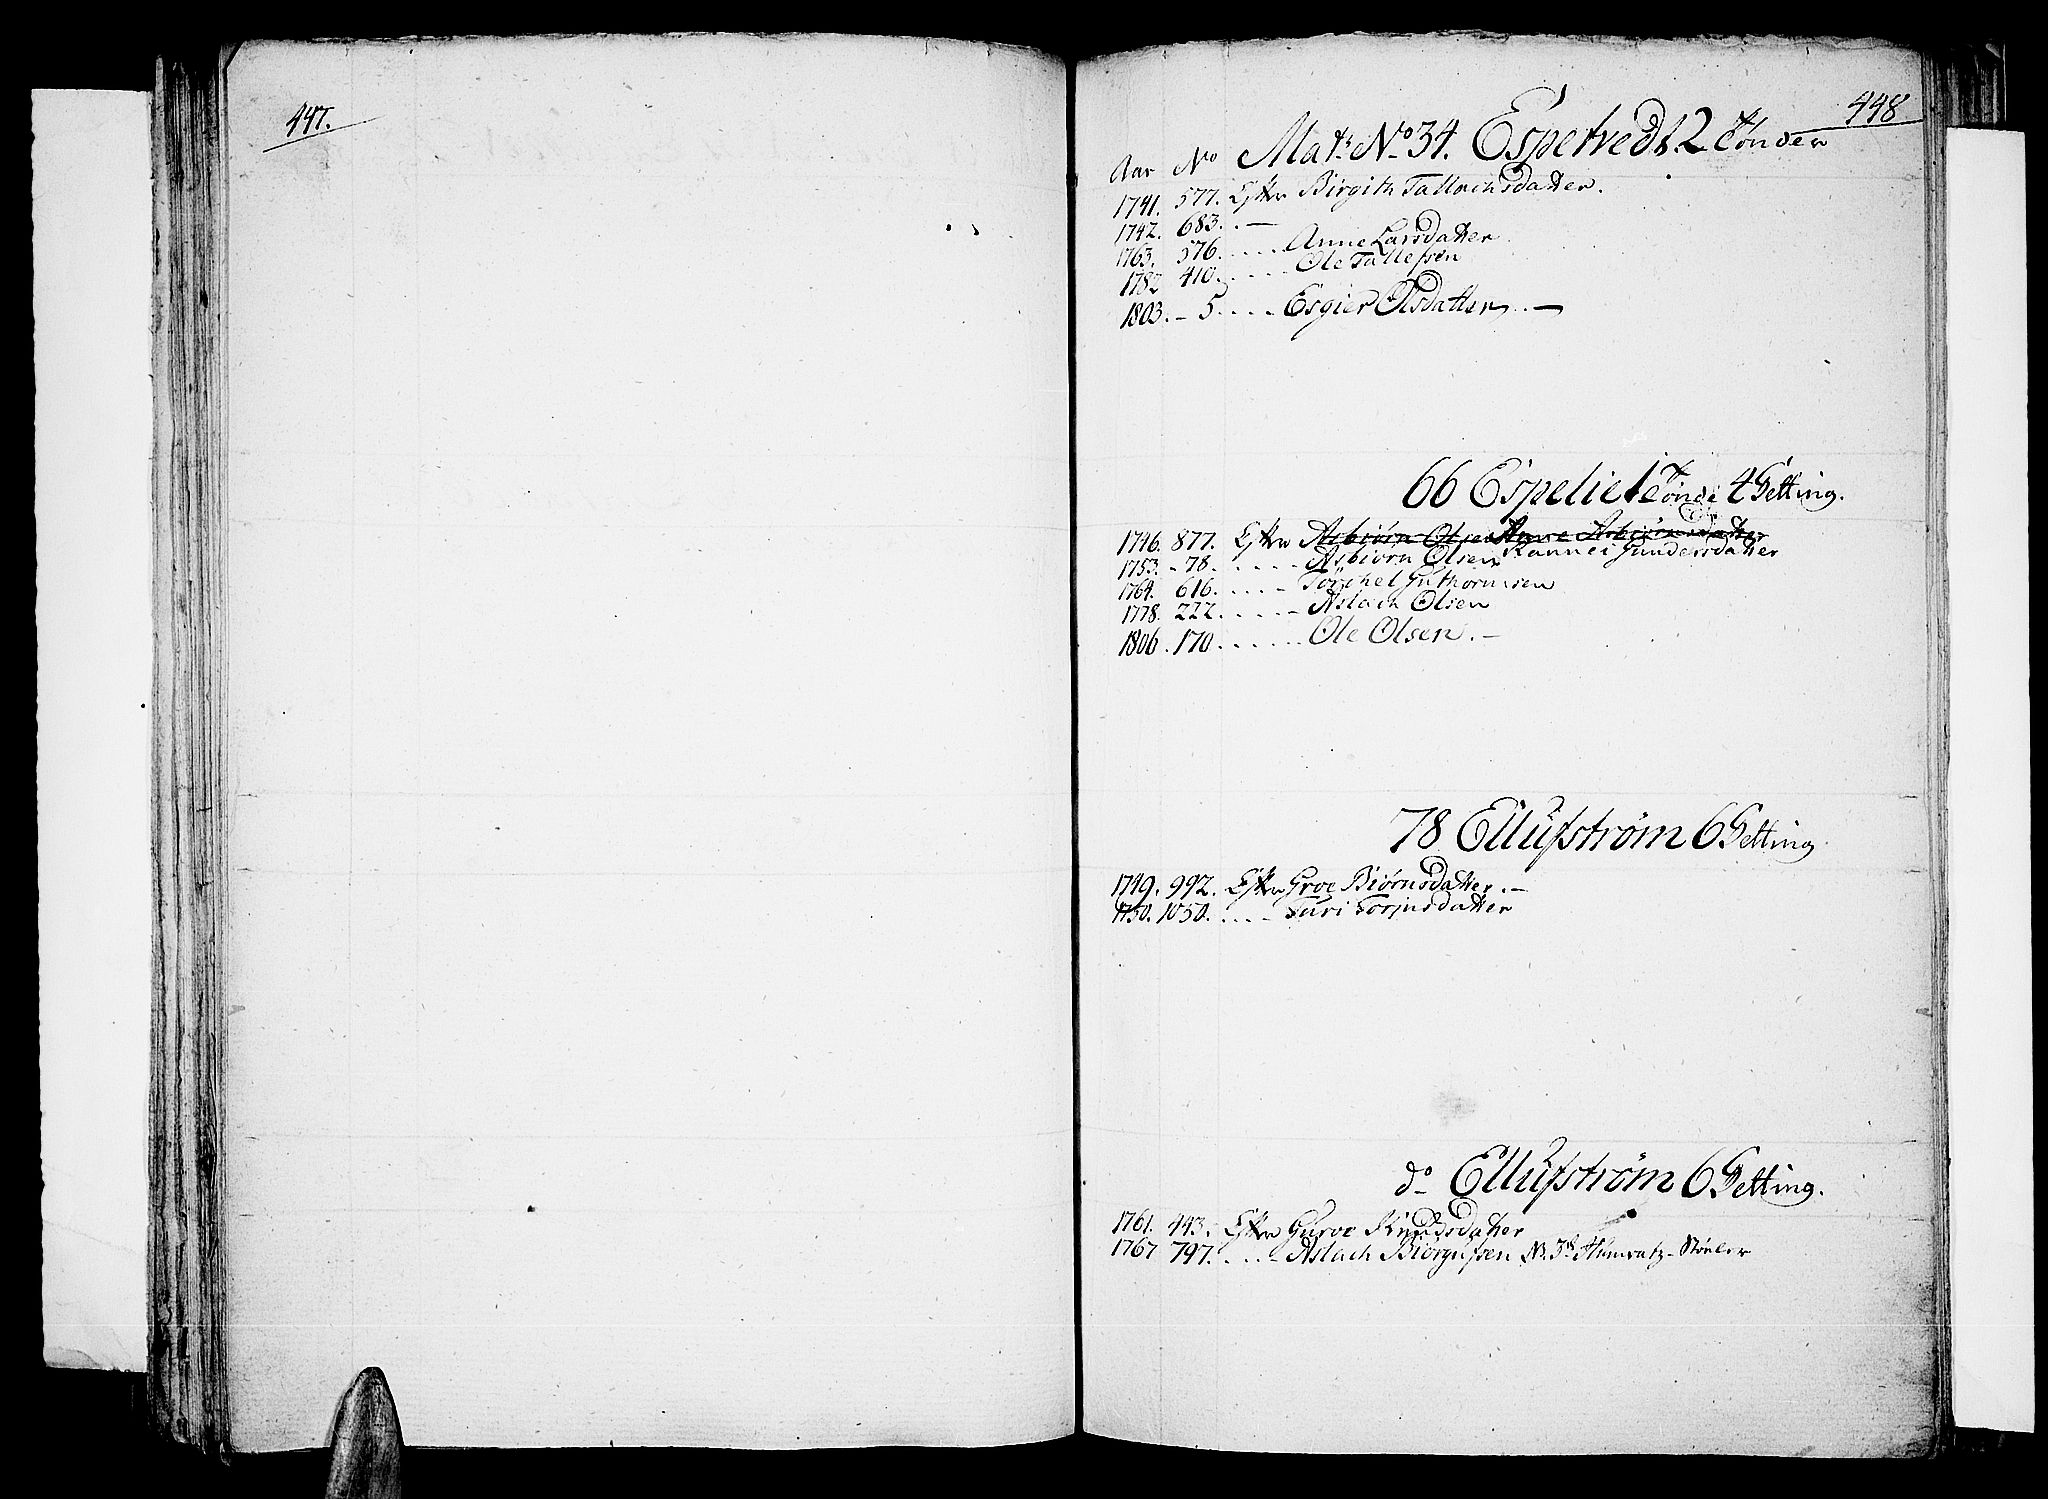 447.
448
Aar No Matr No 34. Espetvedt. 2 Tønder
1741. 577. Efter Birgith Tallachsdatter.
1742. 683. . —
1763. 576. . . . . . Anne Larsdatter
1782 410. . . . . . Ole Tallefsen
1803. - 5. . . . - Esgier Olsdatter . . —
66 Espelie 1 Tønde 4 Setting.
1746. 877. Efter Asbiørn Olsen Anne Asbiørnsdatter
Rannei Gundersdatter
1753. - 78. . . . . - Asbiørn Olsen
1764. 616. . . . . - Torchel Guthormsen
1778. 222. . . . . - Aslach Olsen
1806. 170. . . . . . . Ole Olsen. —
78 Ellufstrøm 6 Setting
1749. 992. Efter Groe Biørnsdatter. —
1750. 1050. . . . - Turi Torjusdatter
do Ellufstrøm 6 Setting.
1761. 443. Efter Gurve Knudsdatter
1767 797. . . . - Aslach Biorgufsen